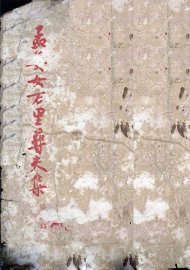 孟姜女万里尋夫集